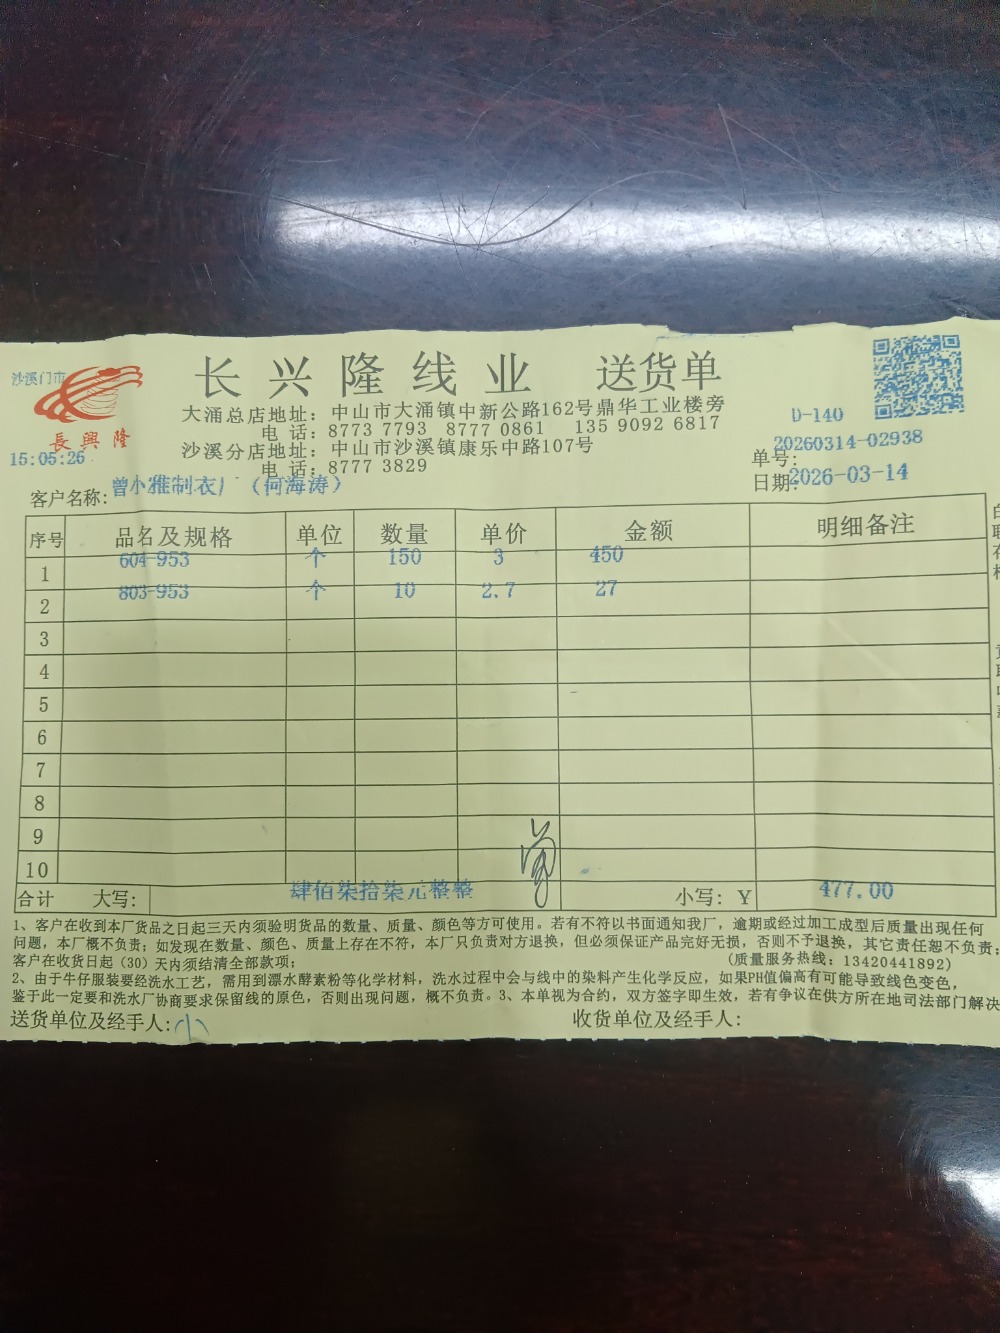 沙溪门市
長興隆
15:05:26
长兴隆线业 送货单
大涌总店地址：中山市大涌镇中新公路162号鼎华工业楼旁
电 话：8773 7793 8777 0861 135 9092 6817
沙溪分店地址：中山市沙溪镇康乐中路107号
电 话：8777 3829
D-140
单号：20260314-02938
日期：2026-03-14
客户名称：曾小雅制衣厂（何海涛）
序号 品名及规格 单位 数量 单价 金额 明细备注
1 604-953 个 150 3 450
2 803-953 个 10 2.7 27
3
4
5
6
7
8
9
10
合计 大写： 肆佰柒拾柒元整整 小写：￥ 477.00
1、客户在收到本厂货品之日起三天内须验明货品的数量、质量、颜色等方可使用。若有不符以书面通知我厂，逾期或经过加工成型后质量出现任何
问题，本厂概不负责；如发现在数量、颜色、质量上存在不符，本厂只负责对方退换，但必须保证产品完好无损，否则不予退换，其它责任恕不负责；
客户在收货日起（30）天内须结清全部款项； （质量服务热线：13420441892）
2、由于牛仔服装要经洗水工艺，需用到漂水酵素粉等化学材料，洗水过程中会与线中的染料产生化学反应，如果PH值偏高有可能导致线色变色，
鉴于此一定要和洗水厂协商要求保留线的原色，否则出现问题，概不负责。3、本单视为合约，双方签字即生效，若有争议在供方所在地司法部门解决
送货单位及经手人：小 收货单位及经手人：